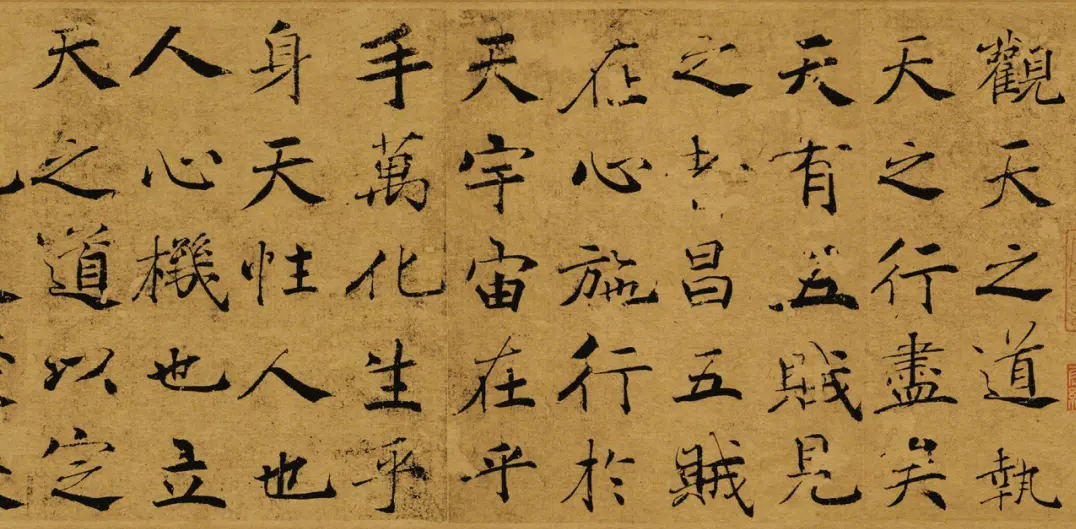 觀天之道執
天之行盡矣
天有五賊見
之者昌五賊
在心施行於
天宇宙在乎
手萬化生乎
身天性人也
人心機也立
天之道以定